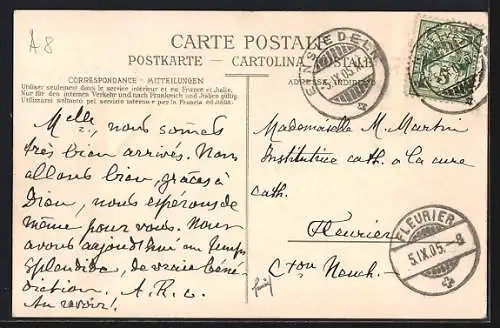 A8
CARTE POSTALE
POSTKARTE - CARTOLINA POSTALE
CORRESPONDANCE - MITTEILUNGEN
Utiliser seulement dans le service intérieur et en France et Italie.
Nur für den internen Verkehr und nach Frankreich und Italien gültig.
Utilizzarsi soltanto pel servizio interno e per la Francia ed Italia.
ADRESSE - INDIRIZZO
EINSIEDELN
5.IX.05.
Melle, nous sommes
très bien arrivés. Nous
allons bien, grâces à
Dieu, nous espérons de
même pour vous. Nous
avons aujourd'hui un temps
splendide, de vraie béné-
diction. A.
Au revoir!
Mademoiselle M. Martin
Institutrice cath. à la cure
cath.
Fleurier
Cton Neuch.
FLEURIER
5.IX.05.-8